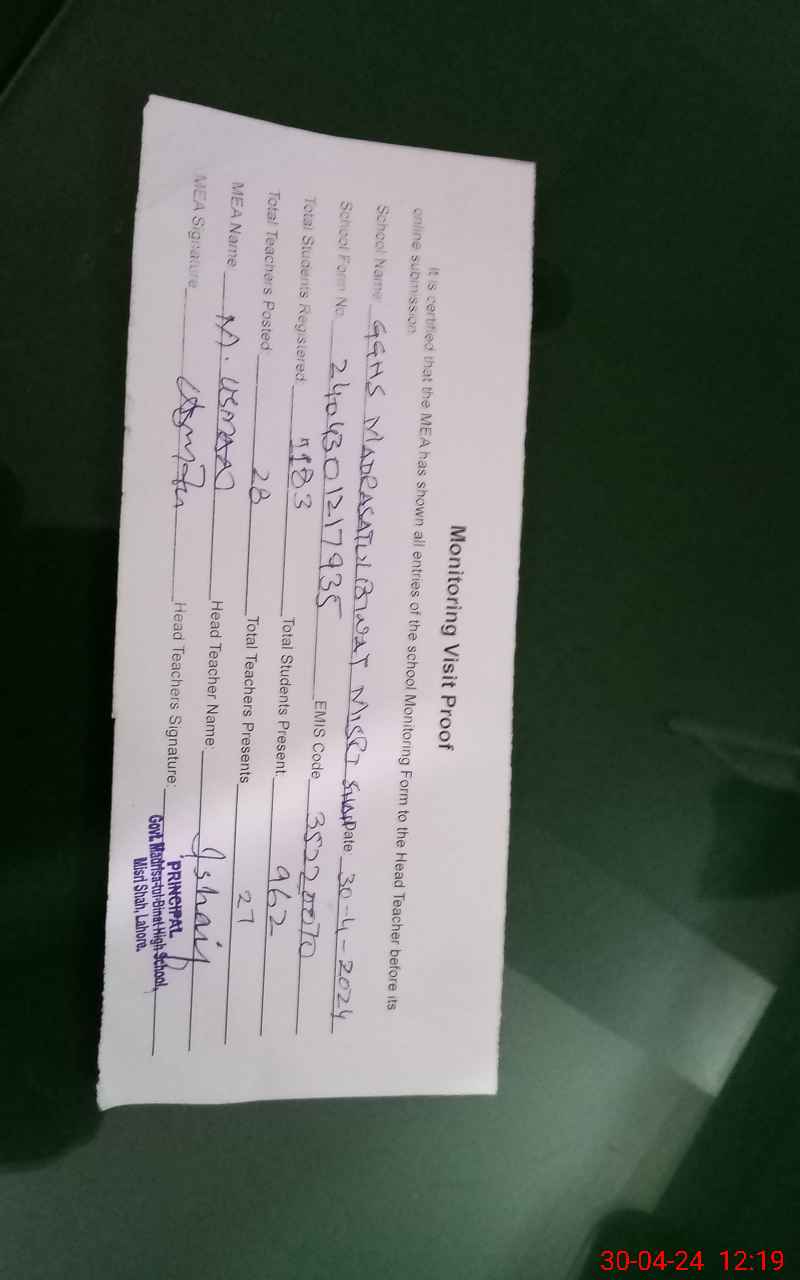 Monitoring Visit Proof
It is certified that the MEA has shown all entries of the school Monitoring Form to the Head Teacher before its
online submission
School Name: GGHS MADRASATUL BINAT MISRI SHAH Date: 30-4-2024
School Form No. 2404301217935 EMIS Code 35220070
Total Students Registered: 1183 Total Students Present: 962
Total Teachers Posted: 28 Total Teachers Presents 27
MEA Name M. USMAN Head Teacher Name:
MEA Signature Head Teachers Signature:
PRINCIPAL
Govt. Madrisa-tul-Binat High School,
Misri Shah, Lahore.
30-04-24 12:19